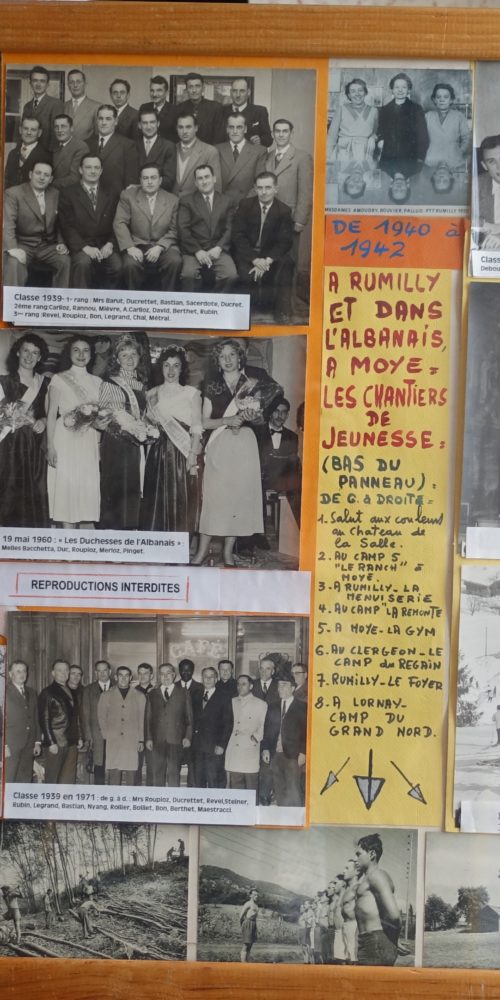 Classe 1939- 1er rang : Mrs Barut, Ducrettet, Bastian, Sacerdote, Ducret.
2ème rang :Carlioz, Rannou, Mièvre, A.Carlioz, David, Berthet, Rubin.
3ème rang :Revel, Roupioz, Bon, Legrand, Chal, Métral.
MESDAMES AMOUDRY, BOUVIER, PALLUD. PTT RUMILLY
19 mai 1960 : « Les Duchesses de l'Albanais »
Melles Bacchetta, Duc, Roupioz, Merloz, Pinget.
REPRODUCTIONS INTERDITES
CAFÉ
Classe 1939 en 1971 : de g. à d. : Mrs Roupioz, Ducrettet, Revel,Steiner,
Rubin, Legrand, Bastian, Nyang, Rollier, Boillet, Bon, Berthet, Maestracci.
DE 1940 à
1942
A RUMILLY
ET DANS
L'ALBANAIS,
A MOYE =
LES CHANTIERS
DE
JEUNESSE =
(BAS DU
PANNEAU) =
DE G. à DROITE =
1. Salut aux couleurs
au Chateau de
la Salle.
2. AU CAMP 5
"LE RANCH" à
MOYE.
3- A RUMILLY - LA
MENUISERIE
4. AU CAMP "LA REMONTE
5- A MOYE - LA GYM
6. AU CLERGEON - LE
CAMP du REGAIN
7. RUMILLY - LE FOYER
8. A LORNAY-
CAMP DU
GRAND NORD.
Class
Debou